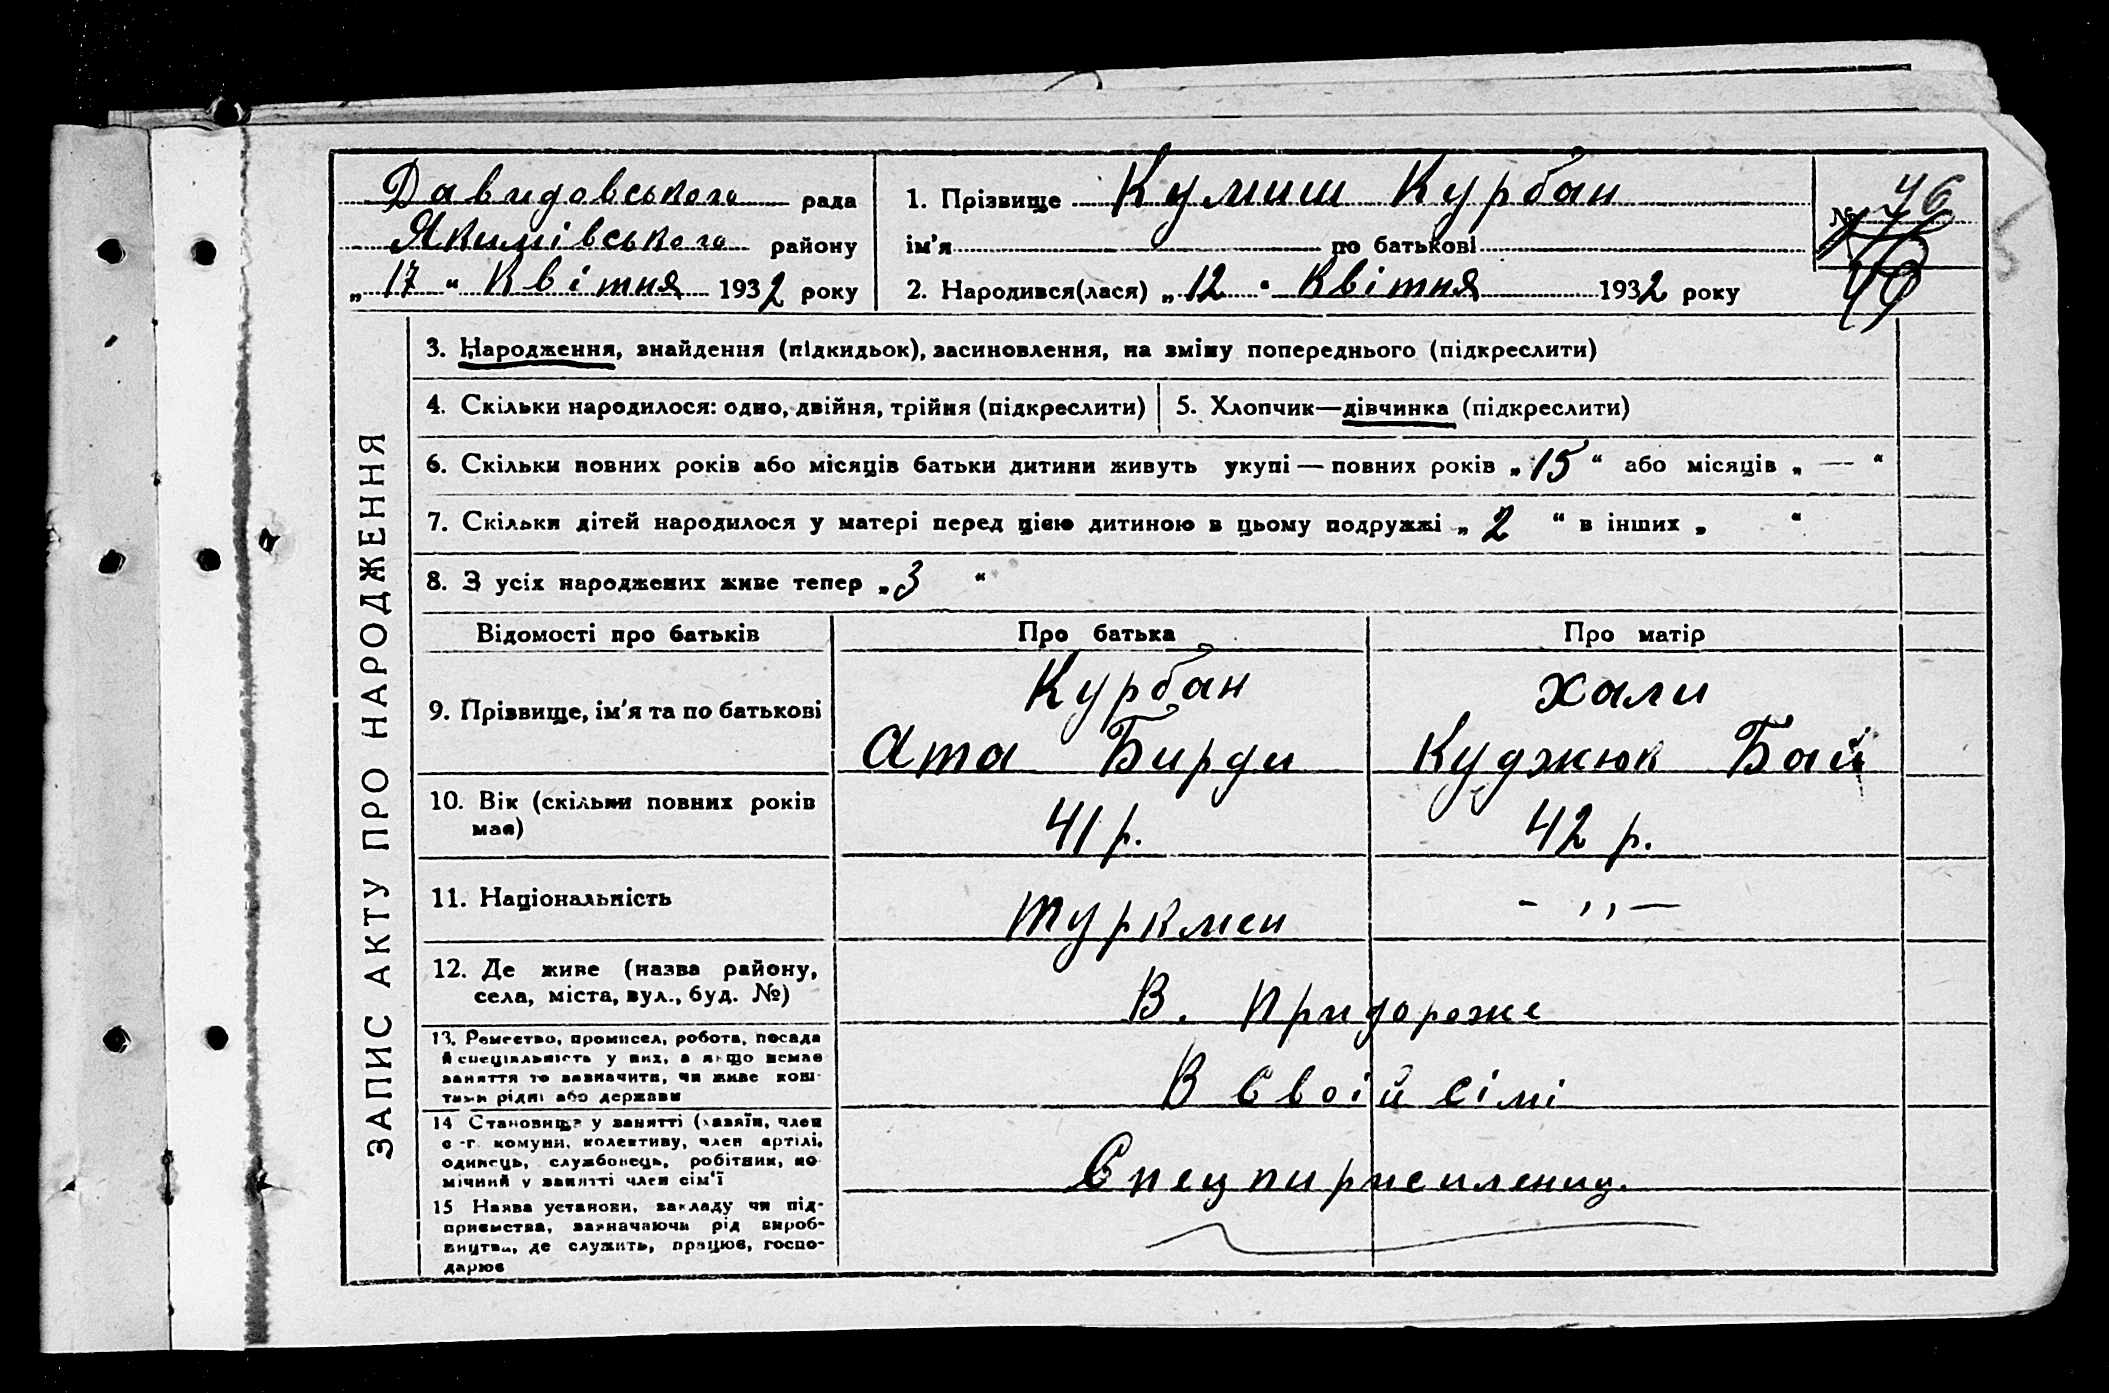 Давидовського рада
Якимівського району
„ 17 " Квітня 1932 року
1. Прізвище Кумиш Курбан
ім'я по батькові
2. Народився(лася) „ 12 " Квітня 1932 року
№ 46
ЗАПИС АКТУ ПРО НАРОДЖЕННЯ
3. Народження, знайдення (підкидьок), засиновлення, на зміну попереднього (підкреслити)
4. Скільки народилося: одно, двійня, трійня (підкреслити)
5. Хлопчик—дівчинка (підкреслити)
6. Скільки повних років або місяців батьки дитини живуть укупі — повних років „ 15 " або місяців „ — "
7. Скільки дітей народилося у матері перед цією дитиною в цьому подружжі „ 2 " в інших „ "
8. З усіх народжених живе тепер „ 3 "
Відомості про батьків Про батька Про матір
9. Прізвище, ім'я та по батькові
Курбан
Ата Бирди
Хали
Куджюк Бай
10. Вік (скільки повних років
має)
41 р. 42 р.
11. Національність туркмен - ,, —
12. Де живе (назва району,
села, міста, вул., буд. №)
В. Придороже
13. Ремество, промисел, робота, посада
й спеціяльність у них, а якщо немає
заняття то зазначити, чи живе кош-
тами рідні або держави
В своїй сімі
14 Становище у занятті (хазяїн, член
с.-г. комуни, колективу, член артілі,
одинець, службовець, робітник, по-
мічний у занятті член сім'ї
Спецпирисиленец.
15 Назва установи, закладу чи під-
приємства, зазначаючи рід вироб-
ництва, де служить, працює, госпо-
дарює